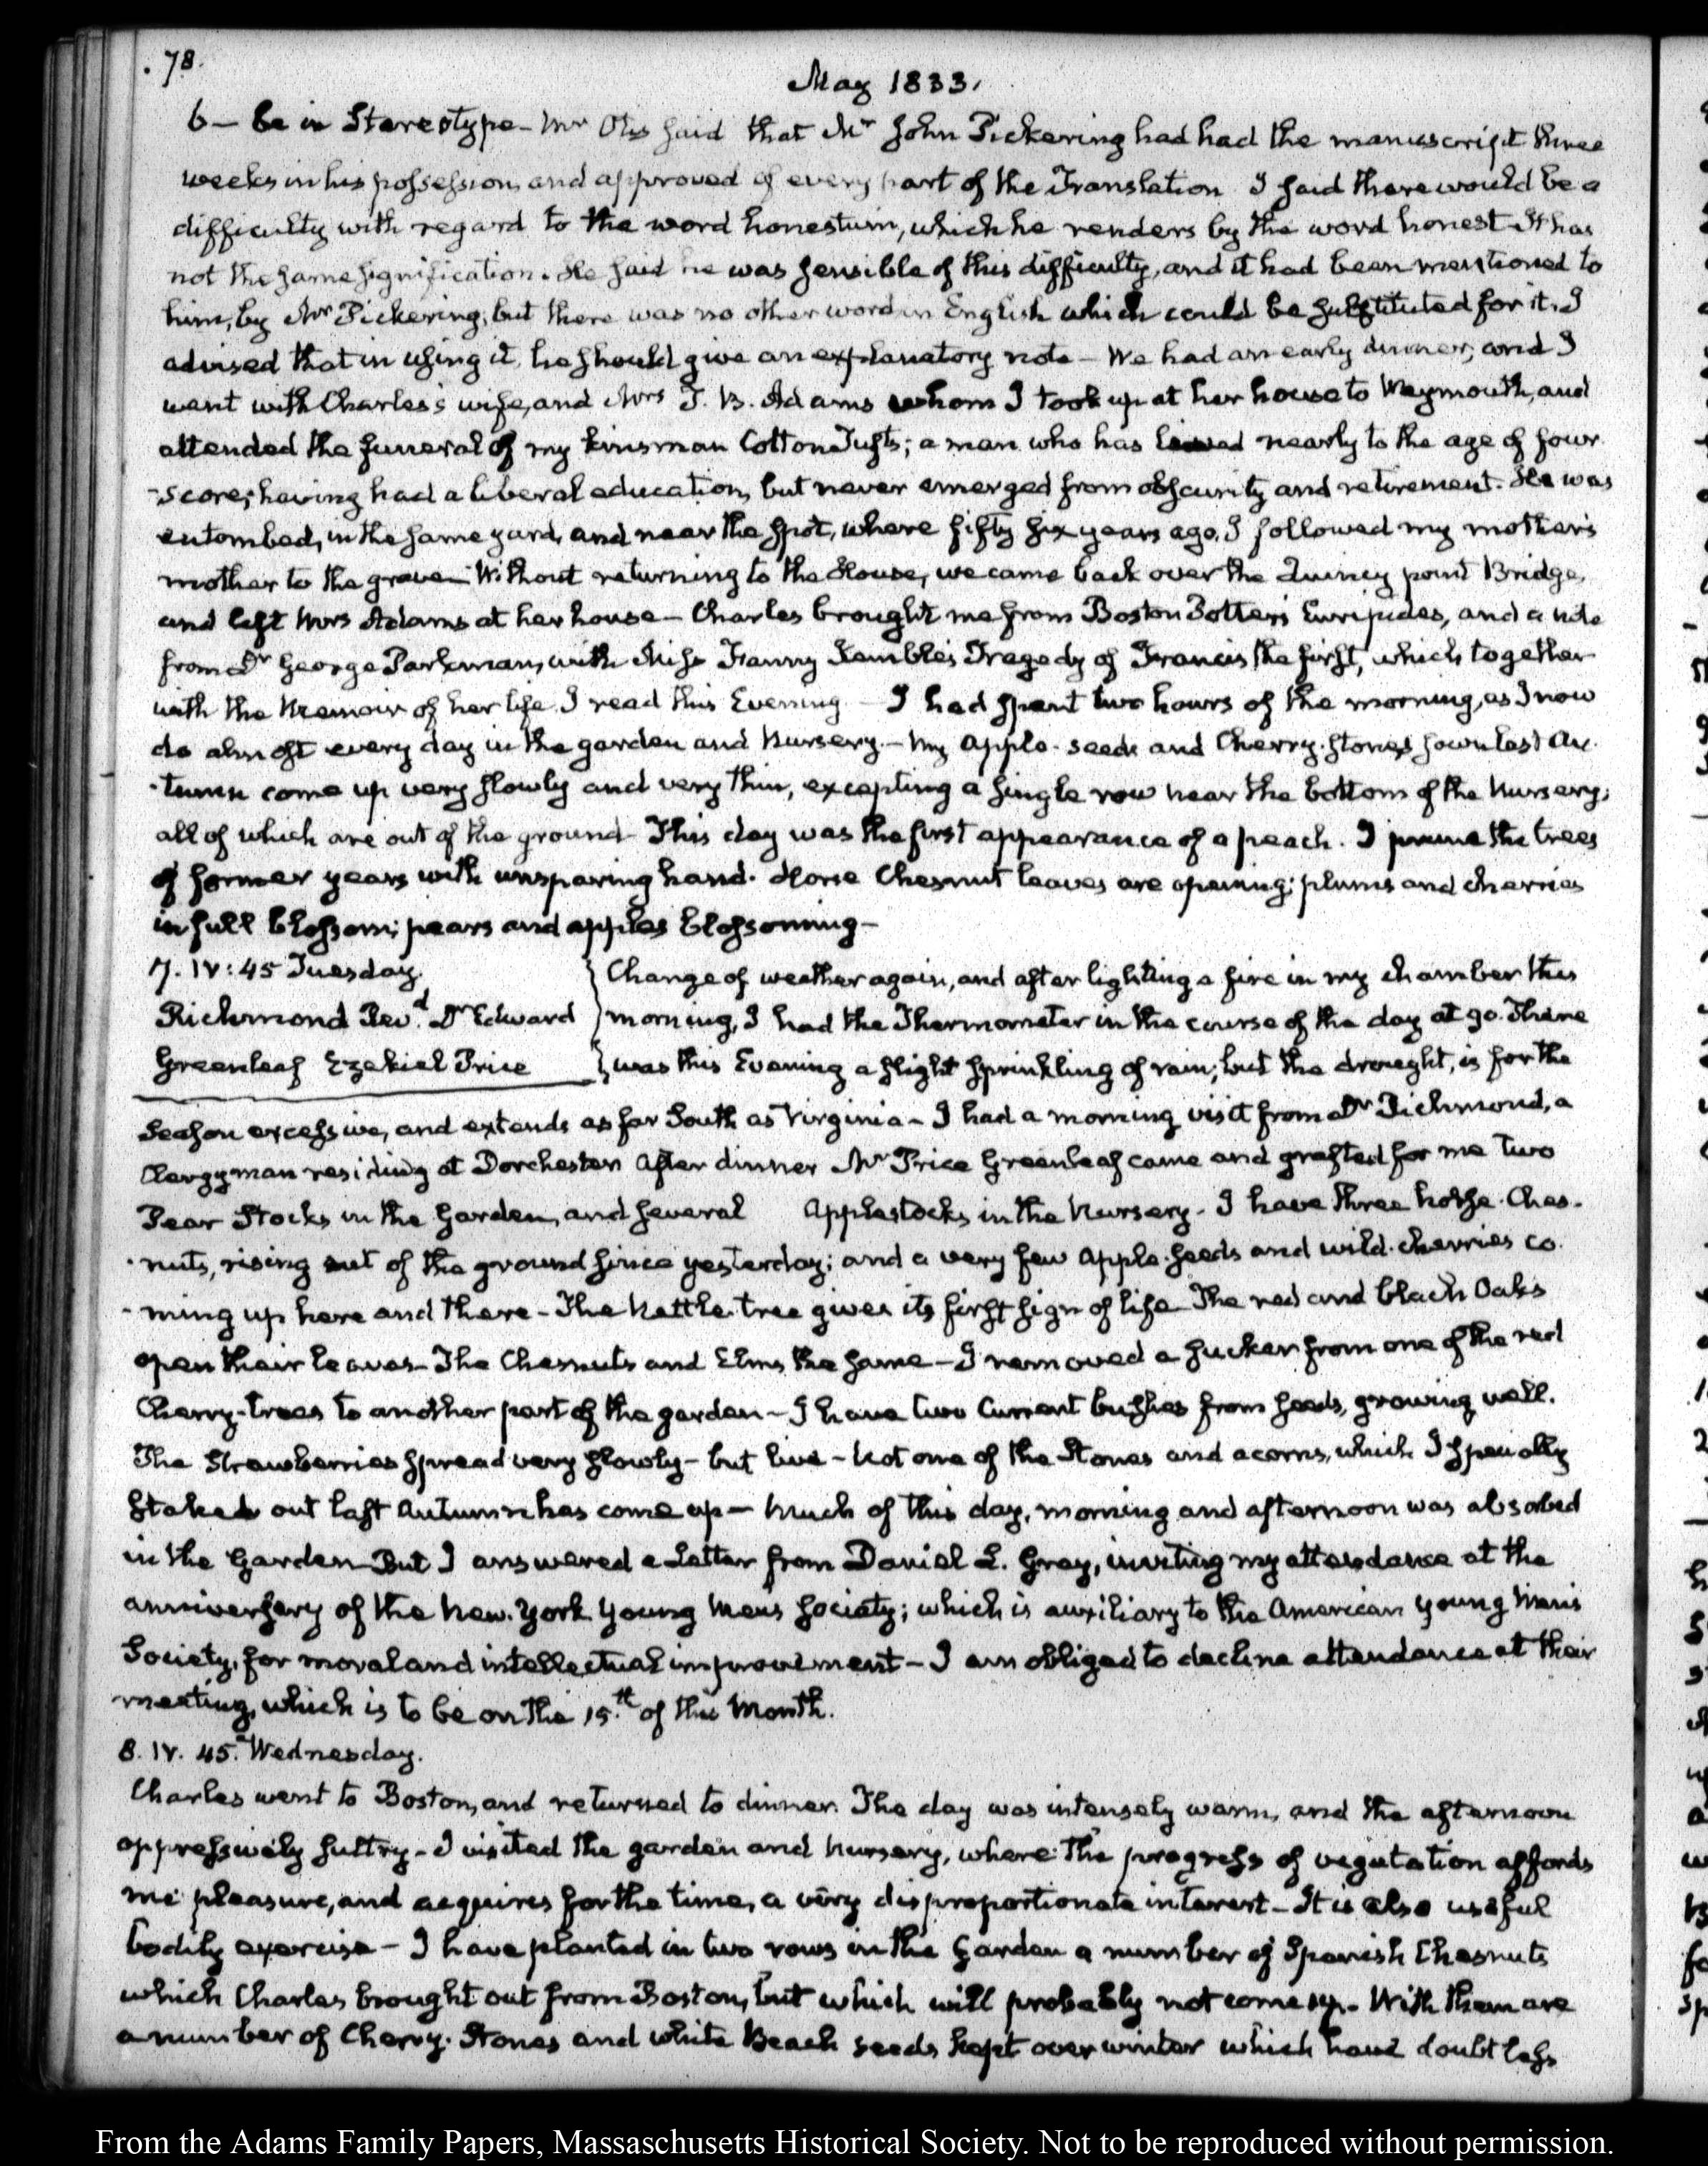 78.
May 1833.
6 — be in Stereotype — Mr Otis said that Mr John Pickering had had the manuscript three
weeks in his possession, and approved of every part of the Translation I said there would be a
difficulty with regard to the word honestum, which he renders by the word honest — It has
not the same signification. He said he was sensible of this difficulty, and it had been mentioned to
him, by Mr Pickering; but there was no other word in English which could be substituted for it. I
advised that in using it, he should give an explanatory note — We had an early dinner, and I
went with Charles's wife, and Mrs T. B. Adams whom I took up at her house to Weymouth, and
attended the funeral of my kinsman Cotton Tufts; a man who has lived nearly to the age of four
-score; having had a liberal education, but never emerged from obscurity and retirement. He was
entombed, in the same yard, and near the spot, where fifty six years ago, I followed my mother's
mother to the grave — Without returning to the House, we came back over the Quincy point Bridge,
and left Mrs Adams at her house — Charles brought me from Boston Potter's Euripides, and a note
from Dr George Parkman, with Miss Fanny Kemble's Tragedy of Francis the first, which together
with the Memoir of her life I read this Evening — I had spent two hours of the morning, as I now
do almost every day in the garden and Nursery. — My Apple-seeds and Cherry-stones sown last Au-
-tumn come up very slowly and very thin, excepting a single row near the bottom of the Nursery;
all of which are out of the ground — This day was the first appearance of a peach. I prune the trees
of former years with unsparing hand. Horse Chesnut leaves are opening; plums and cherries
in full blossom; pears and apples blossoming —
7. IV:45 Tuesday
Richmond Revd. Dr Edward
Greenleaf Ezekiel Price
Change of weather again, and after lighting a fire in my chamber this
morning, I had the Thermometer in the course of the day at 90. There
was this Evening a slight sprinkling of rain; but the drought, is for the
Season excessive, and extends as far South as Virginia — I had a morning visit from Dr Richmond, a
Clergyman residing at Dorchester After dinner Mr Price Greenleaf came and grafted for me two
Pear Stocks in the Garden, and several Applestocks in the Nursery. I have three horse-Ches-
-nuts, rising out of the ground since yesterday; and a very few Apple-seeds and wild-cherries co-
-ming up here and there — The Nettle-tree gives its first sign of life The red and black Oaks
open their leaves — The Chesnuts and Elms the same — I removed a sucker from one of the red
Cherry-trees to another part of the garden — I have two Currant bushes from seeds, growing well.
The Strawberries spread very slowly — but live — Not one of the Stones and acorns, which I specially
Staked out last Autumn has come up — Much of this day, morning and afternoon was absorbed
in the Garden — But I answered a Letter from Daniel L. Gray, inviting my attendance at the
anniversary of the New-York Young Men's Society; which is auxiliary to the American young Men's
Society, for moral and intellectual improvement — I am obliged to decline attendance at their
meeting, which is to be on the 15th. of this Month.
8. IV. 45. Wednesday.
Charles went to Boston, and returned to dinner. The day was intensely warm, and the afternoon
oppressively sultry — I visited the garden and Nursery, where the progress of vegetation affords
me pleasure, and acquires for the time, a very disproportionate interest — It is also useful
bodily exercise — I have planted in two rows in the Garden a number of Spanish Chesnuts
which Charles brought out from Boston, but which will probably not come up. With them are
a number of Cherry-Stones and white Beach seeds kept over winter which have doubtless
From the Adams Family Papers, Massachusetts Historical Society. Not to be reproduced without permission.